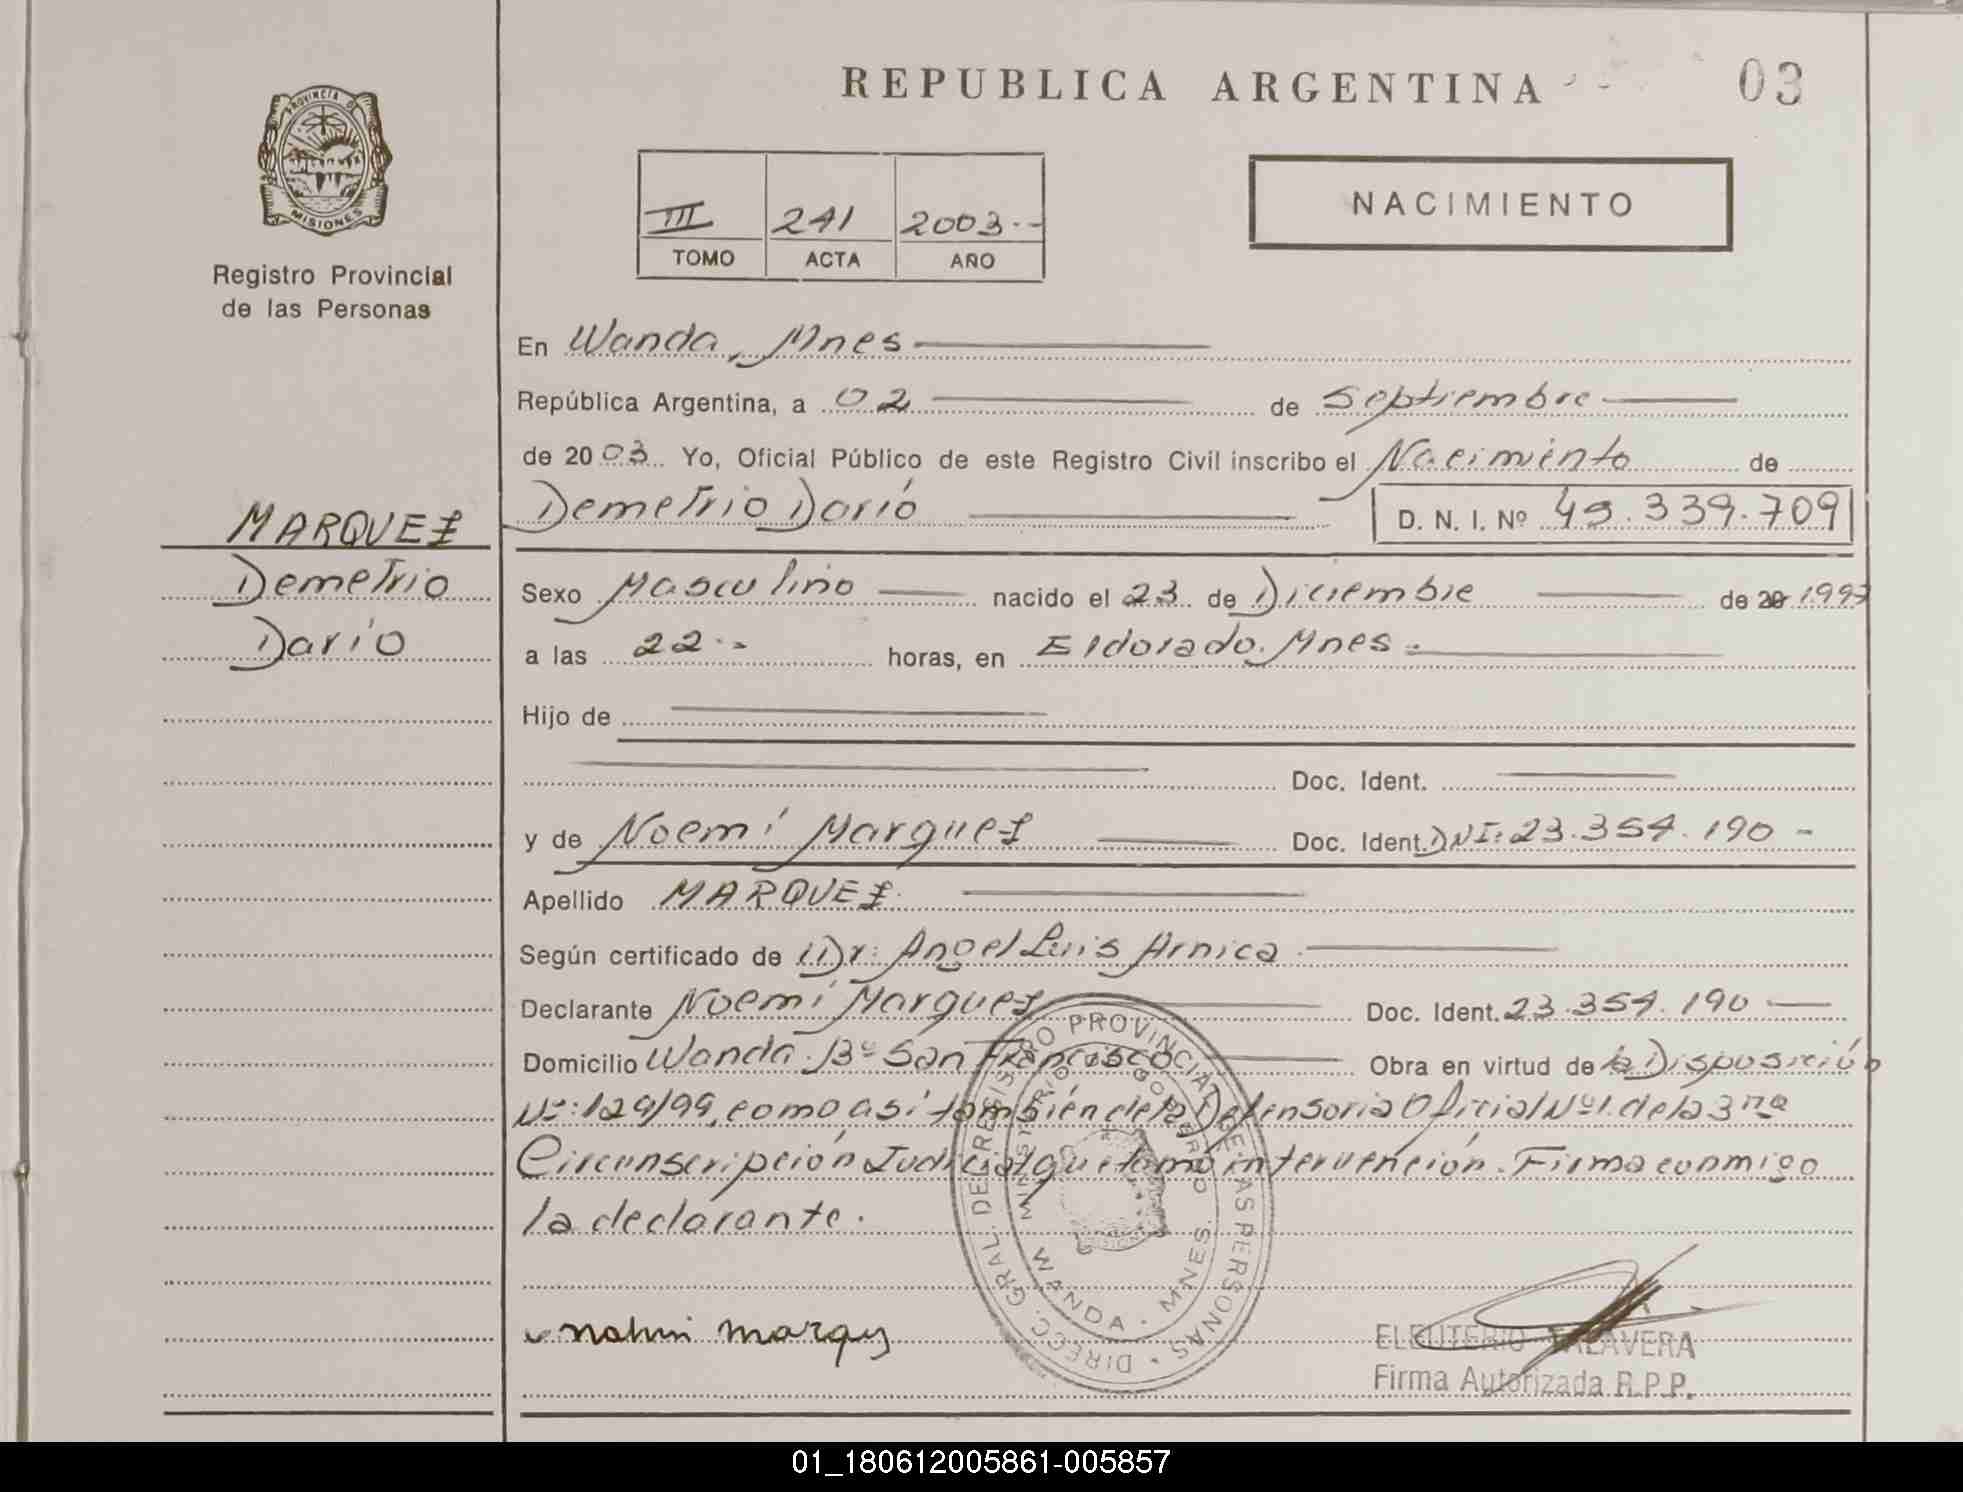 REPUBLICA ARGENTINA
03
PROVINCIA DE
MISIONES
Registro Provincial
de las Personas
III 241 2003.-
TOMO ACTA AÑO
NACIMIENTO
En Wanda, Mnes
República Argentina, a 02 de Septiembre
de 2003. Yo, Oficial Público de este Registro Civil inscribo el Nacimiento de
Demetrio Darió
D. N. I. Nº 49.339.709
MARQUEZ
Demetrio
Darío
Sexo Masculino nacido el 23 de Diciembre de 20 1997
a las 22.- horas, en Eldorado. Mnes.
Hijo de
Doc. Ident.
y de Noemí Marquez Doc. Ident. DNI: 23.354.190 -
Apellido MARQUEZ.
Según certificado de Dr. Angel Luis Arnica
Declarante Noemí Marquez Doc. Ident. 23.354.190
Domicilio Wanda. Bº San Francisco Obra en virtud de la Disposición
Nº: 129/99, como así también de la Defensoria Oficial Nº 1. de la 3ra
Circunscripción Judicial que tomó intervención. Firma conmigo
la declarante.
DIRECC. GRAL. DE REGISTRO PROVINCIAL DE LAS PERSONAS
MINISTERIO DE GOBIERNO
WANDA - MNES.
ELEUTERIO TALAVERA
Firma Autorizada R.P.P.
01_180612005861-005857